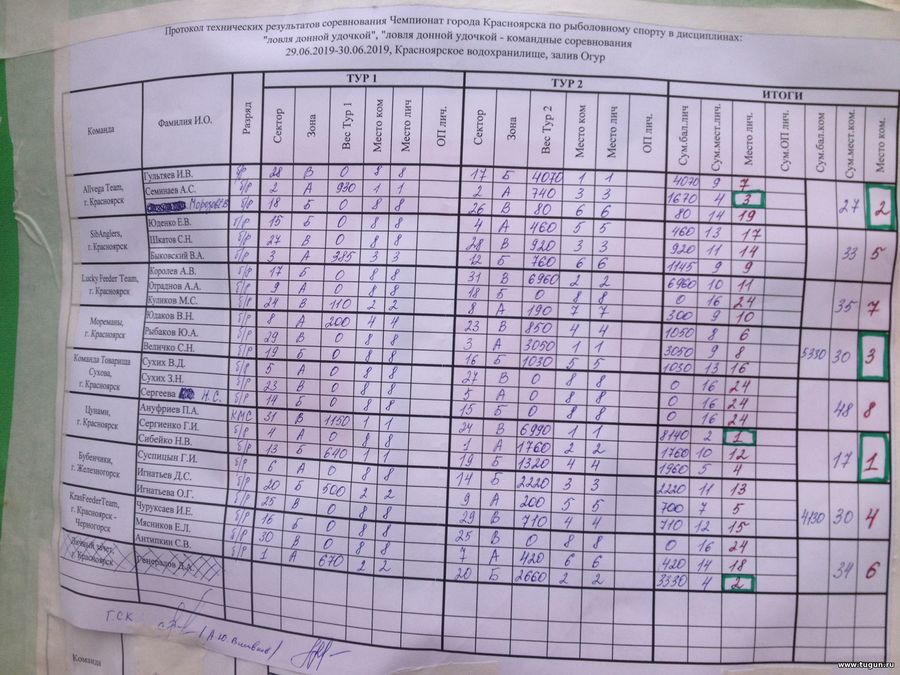 Протокол технических результатов соревнования Чемпионат города Красноярска по рыболовному спорту в дисциплинах:
"ловля донной удочкой", "ловля донной удочкой - командные соревнования
29.06.2019-30.06.2019, Красноярское водохранилище, залив Огур
ТУР 1 ТУР 2 ИТОГИ
Команда Фамилия И.О. Разряд Сектор Зона Вес Тур 1 Место ком Место лич ОП лич. Сектор Зона Вес Тур 2 Место ком Место лич ОП лич. Сум.бал.лич Сум.мест.лич. Место лич. Сум.ОП лич. Сум.бал.ком Сум.мест.ком. Место ком.
Allvega Team, г. Красноярск 27 2
Гультяев И.В. б/р 28 В 0 8 8 17 Б 4070 1 1 4070 9 7
Семинаев А.С. б/р 2 А 930 1 1 2 А 740 3 3 1670 4 3
б/р 18 Б 0 8 8 26 В 80 6 6 80 14 19
SibAnglers, г. Красноярск 33 5
Юденко Е.В. б/р 15 Б 0 8 8 4 А 460 5 5 460 13 17
Шкатов С.Н. б/р 27 В 0 8 8 28 В 920 3 3 920 11 14
Быковский В.А. б/р 3 А 385 3 3 12 Б 760 6 6 1145 9 9
Lucky Feeder Team, г. Красноярск 35 7
Королев А.В. б/р 17 Б 0 8 8 31 В 6960 2 2 6960 10 11
Отраднов А.А. б/р 9 А 0 8 8 18 Б 0 8 8 0 16 24
Куликов М.С. б/р 24 В 110 2 2 8 А 190 7 7 300 9 10
Мореманы, г. Красноярск 5330 30 3
Юдаков В.Н. б/р 8 А 200 4 4 23 В 850 4 4 1050 8 6
Рыбаков Ю.А. б/р 29 В 0 8 8 3 А 3050 1 1 3050 9 8
Величко С.Н. б/р 19 Б 0 8 8 16 Б 1030 5 5 1030 13 16
Команда Товарища Сухова, г. Красноярск 48 8
Сухих В.Д. б/р 5 А 0 8 8 27 В 0 8 8 0 16 24
Сухих З.Н. б/р 23 В 0 8 8 5 А 0 8 8 0 16 24
Сергеева Н.С. б/р 14 Б 0 8 8 15 Б 0 8 8 0 16 24
Цунами, г. Красноярск 17 1
Ануфриев П.А. КМС 31 В 1150 1 1 24 В 6990 1 1 8140 2 1
Сергиенко Г.И. б/р 4 А 0 8 8 1 А 1760 2 2 1760 10 12
Сибейко Н.В. б/р 13 Б 640 1 1 19 Б 1320 4 4 1960 5 4
Бубенчики, г. Железногорск 4130 30 4
Суспицын Г.И. б/р 6 А 0 8 8 14 Б 2220 3 3 2220 11 13
Игнатьев Д.С. б/р 20 Б 500 2 2 9 А 200 5 5 700 7 5
Игнатьева О.Г. б/р 25 В 0 8 8 29 В 710 4 4 710 12 15
KrasFeederTeam, г. Красноярск - Черногорск 34 6
Чуруксаев И.Е. б/р 16 Б 0 8 8 25 В 0 8 8 0 16 24
Мясников Е.Л. б/р 30 В 0 8 8 7 А 420 6 6 420 14 18
Антипкин С.В. б/р 1 А 670 2 2 20 Б 2660 2 2 3330 4 2
Личный зачет, г. Красноярск Ренерадов Д.А.
Г.С.К.
Команда
www.tugun.ru